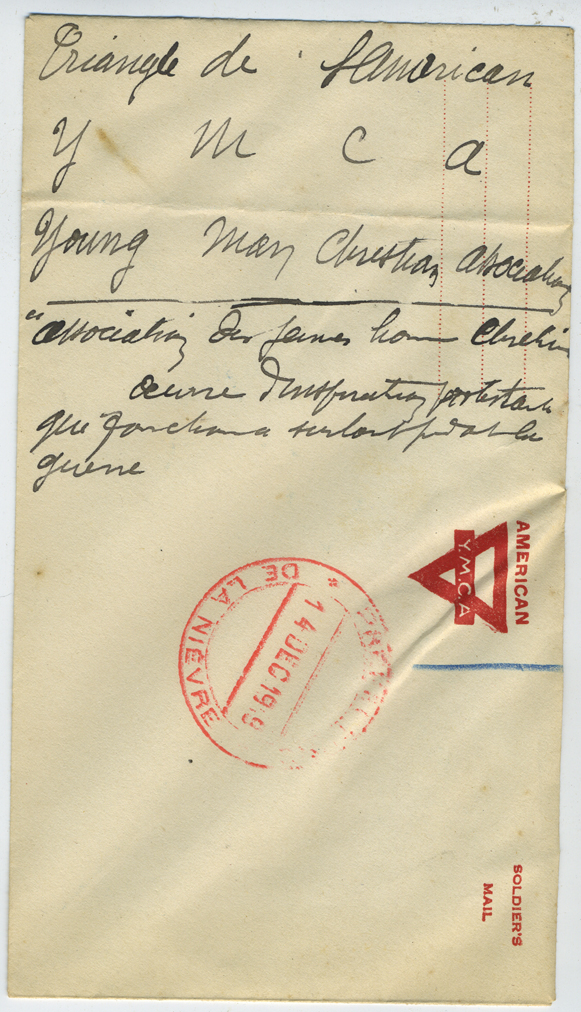 Triangle de l'American
Y M C A
Young Men Christian Association
"Association des jeunes homme Chretien
œuvre d'inspiration protestante
qui fonctionna surtout pendant la
guerre
AMERICAN
Y.M.C.A
DE LA NIÈVRE
14 DEC 1919
SOLDIER'S
MAIL